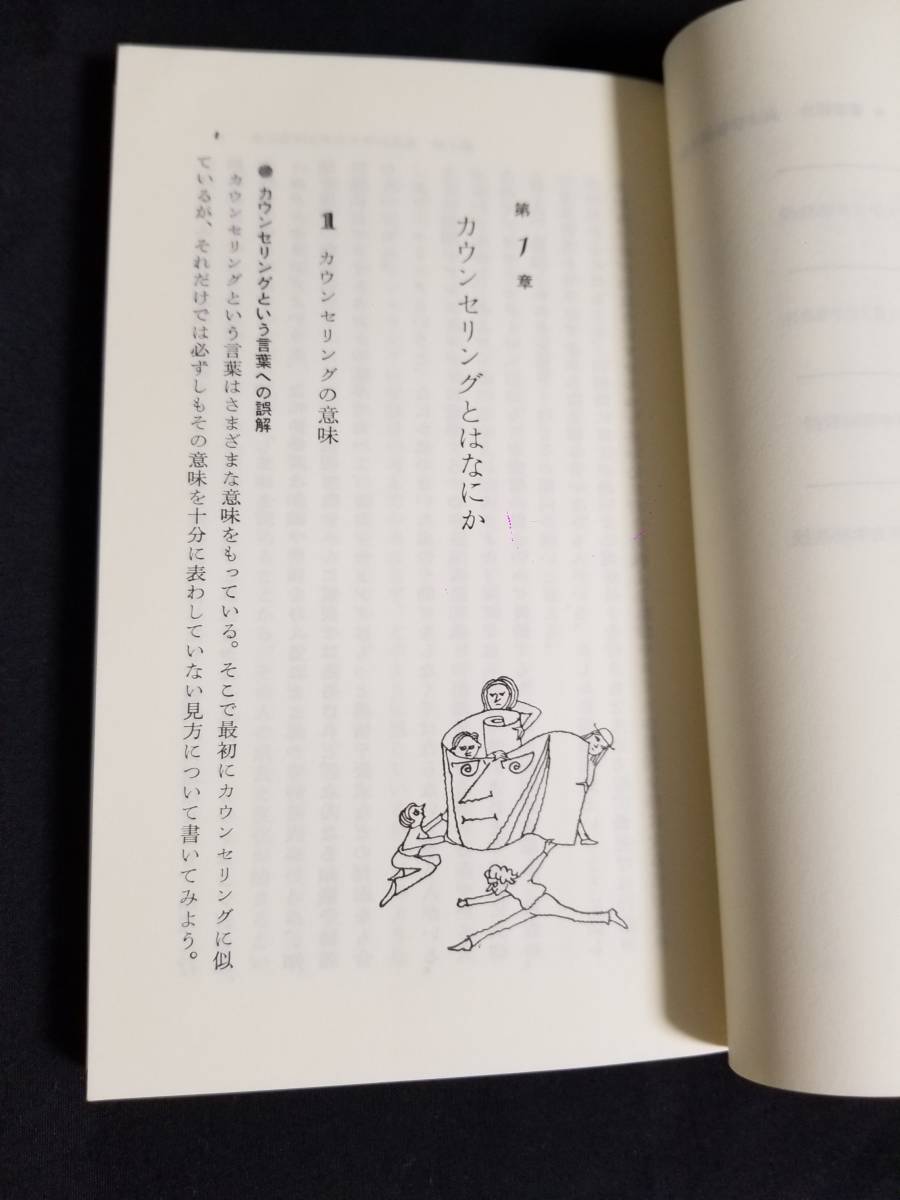 第1章
カウンセリングとはなにか
1 カウンセリングの意味
●カウンセリングという言葉への誤解
カウンセリングという言葉はさまざまな意味をもっている。そこで最初にカウンセリングに似
ているが、それだけでは必ずしもその意味を十分に表わしていない見方について書いてみよう。